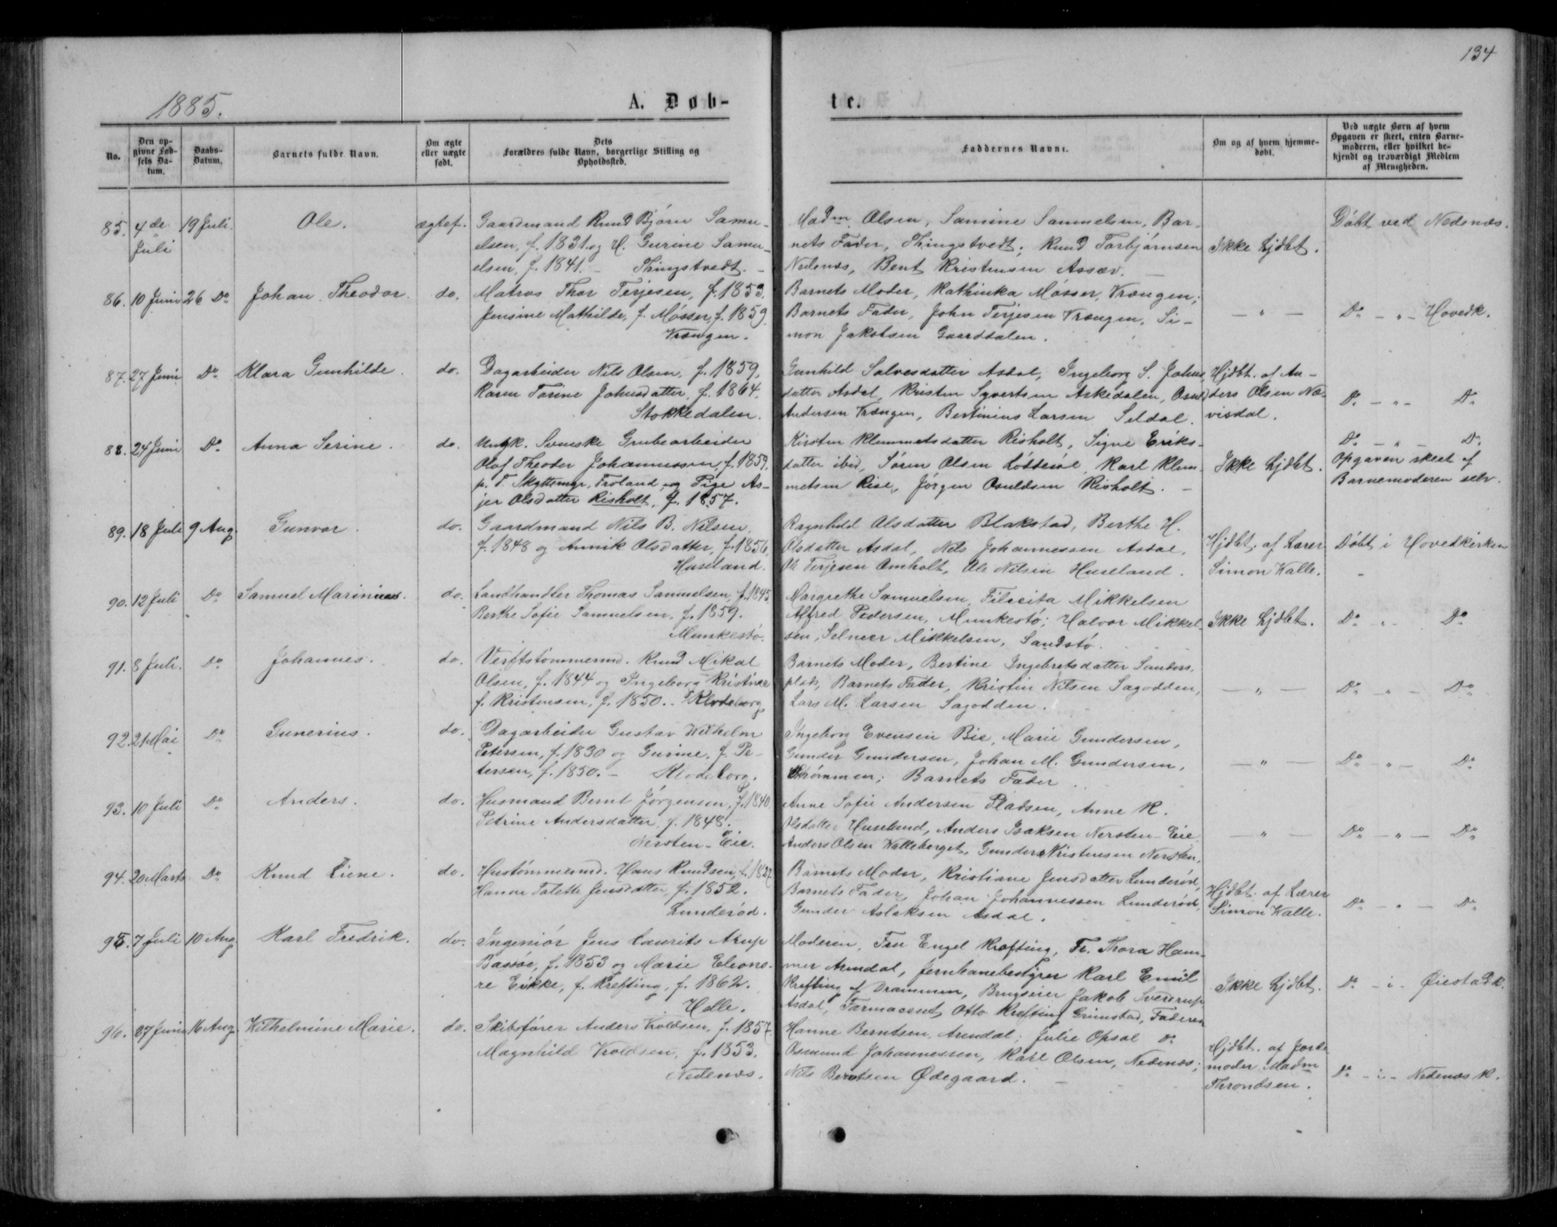 134
1885.
A. Døb-
te.
No.
Den op-
givne Fød-
sels Da-
tum.
Daabs-
Datum.
Barnets fulde Navn.
Om ægte
eller uægte
født.
Dets
Forældres fulde Navn, borgerlige Stilling og
Opholdssted.
Faddernes Navne.
Om og af hvem hjemme-
døbt.
Ved uægte Børn af hvem
Opgaven er skeet, enten Barne-
moderen, eller hvilket be-
kjendt og troværdigt Medlem
af Menigheden.
85. 4de 19 Juli. Ole. ægtef. Gaardmand Knud Bjørn Samu-
Juli elsen, f. 1831. og H. Gurine Samu-
elsen, f. 1841. - Thingstvedt. -
Madm Olsen, Samine Samuelsen, Bar-
nets Fader, Thingstvedt; Knud Torbjørnsen
Nedenæs, Bent Kristensen Assæv. -
Ikke hjdbt.
Døbt ved Nedenæs.
86. 10 Juni 26 Do Johan Theodor. do. Matros Thor Terjesen, f. 1853.
Jensine Mathilde, f. Møsser, f. 1859.
Vrængen.
Barnets Moder, Kathinka Møsser, Vrængen;
Barnets Fader, John Terjesen Vrængen, Si-
mon Jakobsen Gaarddalen.
- " -
Do - " - Hovedk.
87. 27 Juni Do Klara Gunhilde. do. Dagarbeider Nils Olsen, f. 1859,
Karen Torine Johnsdatter, f. 1864.
Stokkedalen.
Gunhild Salvesdatter Asdal, Ingeborg S. Johns
datter Asdal, Kristen Syvertsen Askedalen,
Andersen Vrængen, Bertinius Larsen Seldal.
Hjdbt. af An-
ders Olsen Næ-
visdal.
Do - " - Do
88. 24 Juni Do Anna Serine. do. Ungk. Svenske Grubearbeider
Olof Theodor Johannessen, f. 1859.
p. T. Skyttemyr, Froland og Pige As-
jer Olsdatter Risholt, f. 1857.
Kirsten Klemmetsdatter Risholt, Signe Eriks-
datter ibid, Søren Olsen Løddesøl, Karl Klem-
metsen Rise, Jørgen Osuldsen Risholt. -
Ikke hjdbt.
Do - " - Do
Opgaven skeet af
Barnemoderen selv.
89. 18 Juli 9 Aug. Gunvor. do. Gaardmand Nils B. Nilsen,
f. 1848 og Annik Olsdatter, f. 1856.
Huseland.
Ragnhild Olsdatter Blakstad, Berthe H.
Olsdatter Asdal, Nils Johannessen Asdal,
Ole Terjesen Omholt, Ole Nilsen Huseland.
Hjdbt. af Lærer
Simon Kalle.
Døbt i Hovedkirken
90. 12 Juli Do Samuel Marinius. do. Landhandler Thomas Samuelsen, f. 1845.
Berthe Sofie Samuelsen, f. 1859.
Munkestø.
Margrethe Samuelsen, Filicita Mikkelsen
Alfred Pedersen, Munkestø; Halvor Mikkel-
sen, Selmer Mikkelsen, Sandstø.
Ikke hjdbt.
Do - " - Do
91. 8 Juli. Do Johannes. do. Verftstømmermd. Knud Mikal
Olsen, f. 1844 og Ingeborg Kristine
f. Kristensen, f. 1850. Klodeborg
Barnets Moder, Bertine Ingebretsdatter Sanders-
plads, Barnets Fader, Kristin Nilsen Sagodden,
Lars M. Larsen Sagodden.
- " -
Do - " - Do
92. 21 Mai Do Gunerius. do. Dagarbeider Gustav Wilhelm
Petersen, f. 1830 og Gurine, f. Pe-
tersen, f. 1850. - Klodeborg.
Ingeborg Evensen Bie, Marie Gundersen,
Gunder Gundersen, Johan M. Gundersen,
Strømmen; Barnets Fader.
- " -
Do - " - Do
93. 10 Juli Do Anders. do. Husmand Bernt Jørgensen, f. 1840
Petrine Andersdatter, f. 1848. -
Nersten-Eie.
Anne Sofie Andersen Pladsen, Anne K.
Olsdatter Huseland, Anders Isaksen Nersten-Eie
Anders Olsen Kalleberget, Gunder Kristensen Nersten.
- " -
Do - " - Do
94. 20 Marts Do Knud Liene. do. Hustømmermd. Hans Knudsen, f. 1827
Hanne Taleth Jensdatter, f. 1852.
Lunderød.
Barnets Moder, Kristiane Jensdatter Lunderød,
Barnets Fader, Johan Johannessen Lunderød,
Gunder Aslaksen Asdal.
Hjdbt. af Lærer
Simon Kalle.
Do - " - Do
95. 7 Juli 10 Aug. Karl Fredrik. do. Ingeniør Jens Laurits Arup
Bassøe, f. 1853 og Marie Eleono-
re Eikke, f. Krefting, f. 1862.
Helle.
Moderen, Fru Engel Krefting, Fr. Thora Ham-
mer Arendal, Jernbanebestyrer Karl Emil
Krefting af Drammen, Brugseier Jakob Sverdrup
Asdal, Farmaceut Otto Krefting Grimstad, Faderen
Ikke hjdbt.
Do - i - Øiestad K.
96. 27 Juni 16 Aug. Wilhelmine Marie. do. Skibsfører Anders Troldsen, f. 1857
Magnhild Troldsen, f. 1853.
Nedenæs.
Hanne Berntsen, Arendal; Julie Opsal Do
Osmund Johannessen, Karl Olsen, Nedenæs;
Nils Berntsen Ødegaard. -
Hjdbt. af Jorde-
moder Madm
Throndsen.
Do - i - Nedenæs K.